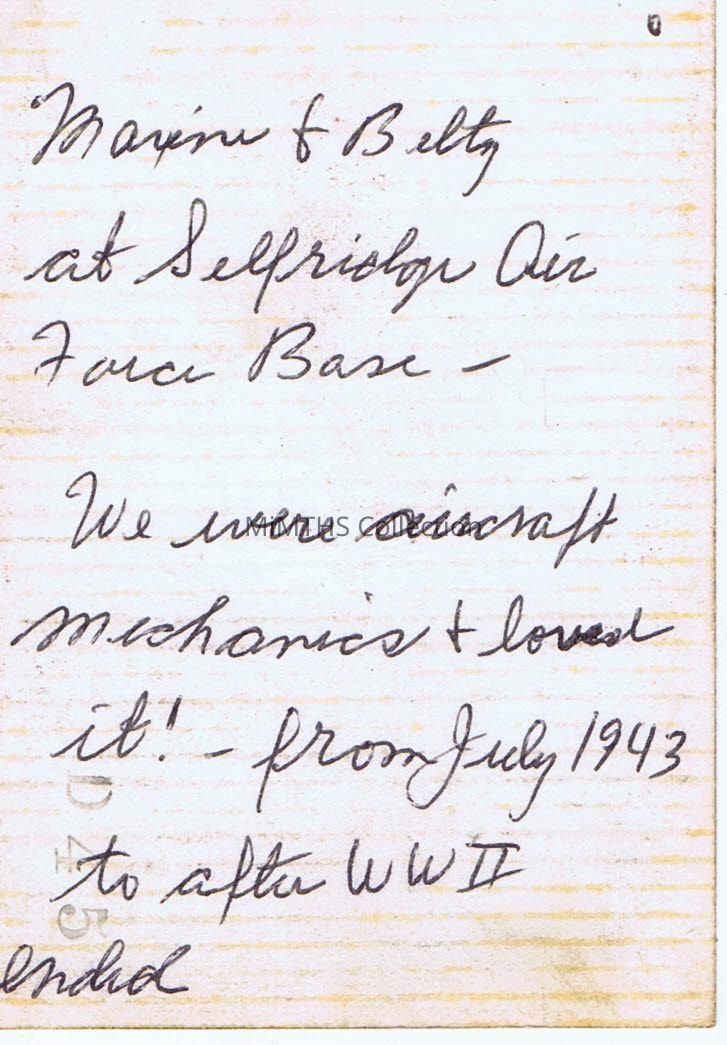 Maxine & Betty
at Selfridge Air
Force Base –
We were aircraft
MiMTHS Collection
mechanics & loved
it! – from July 1943
to after WW II
ended
D45